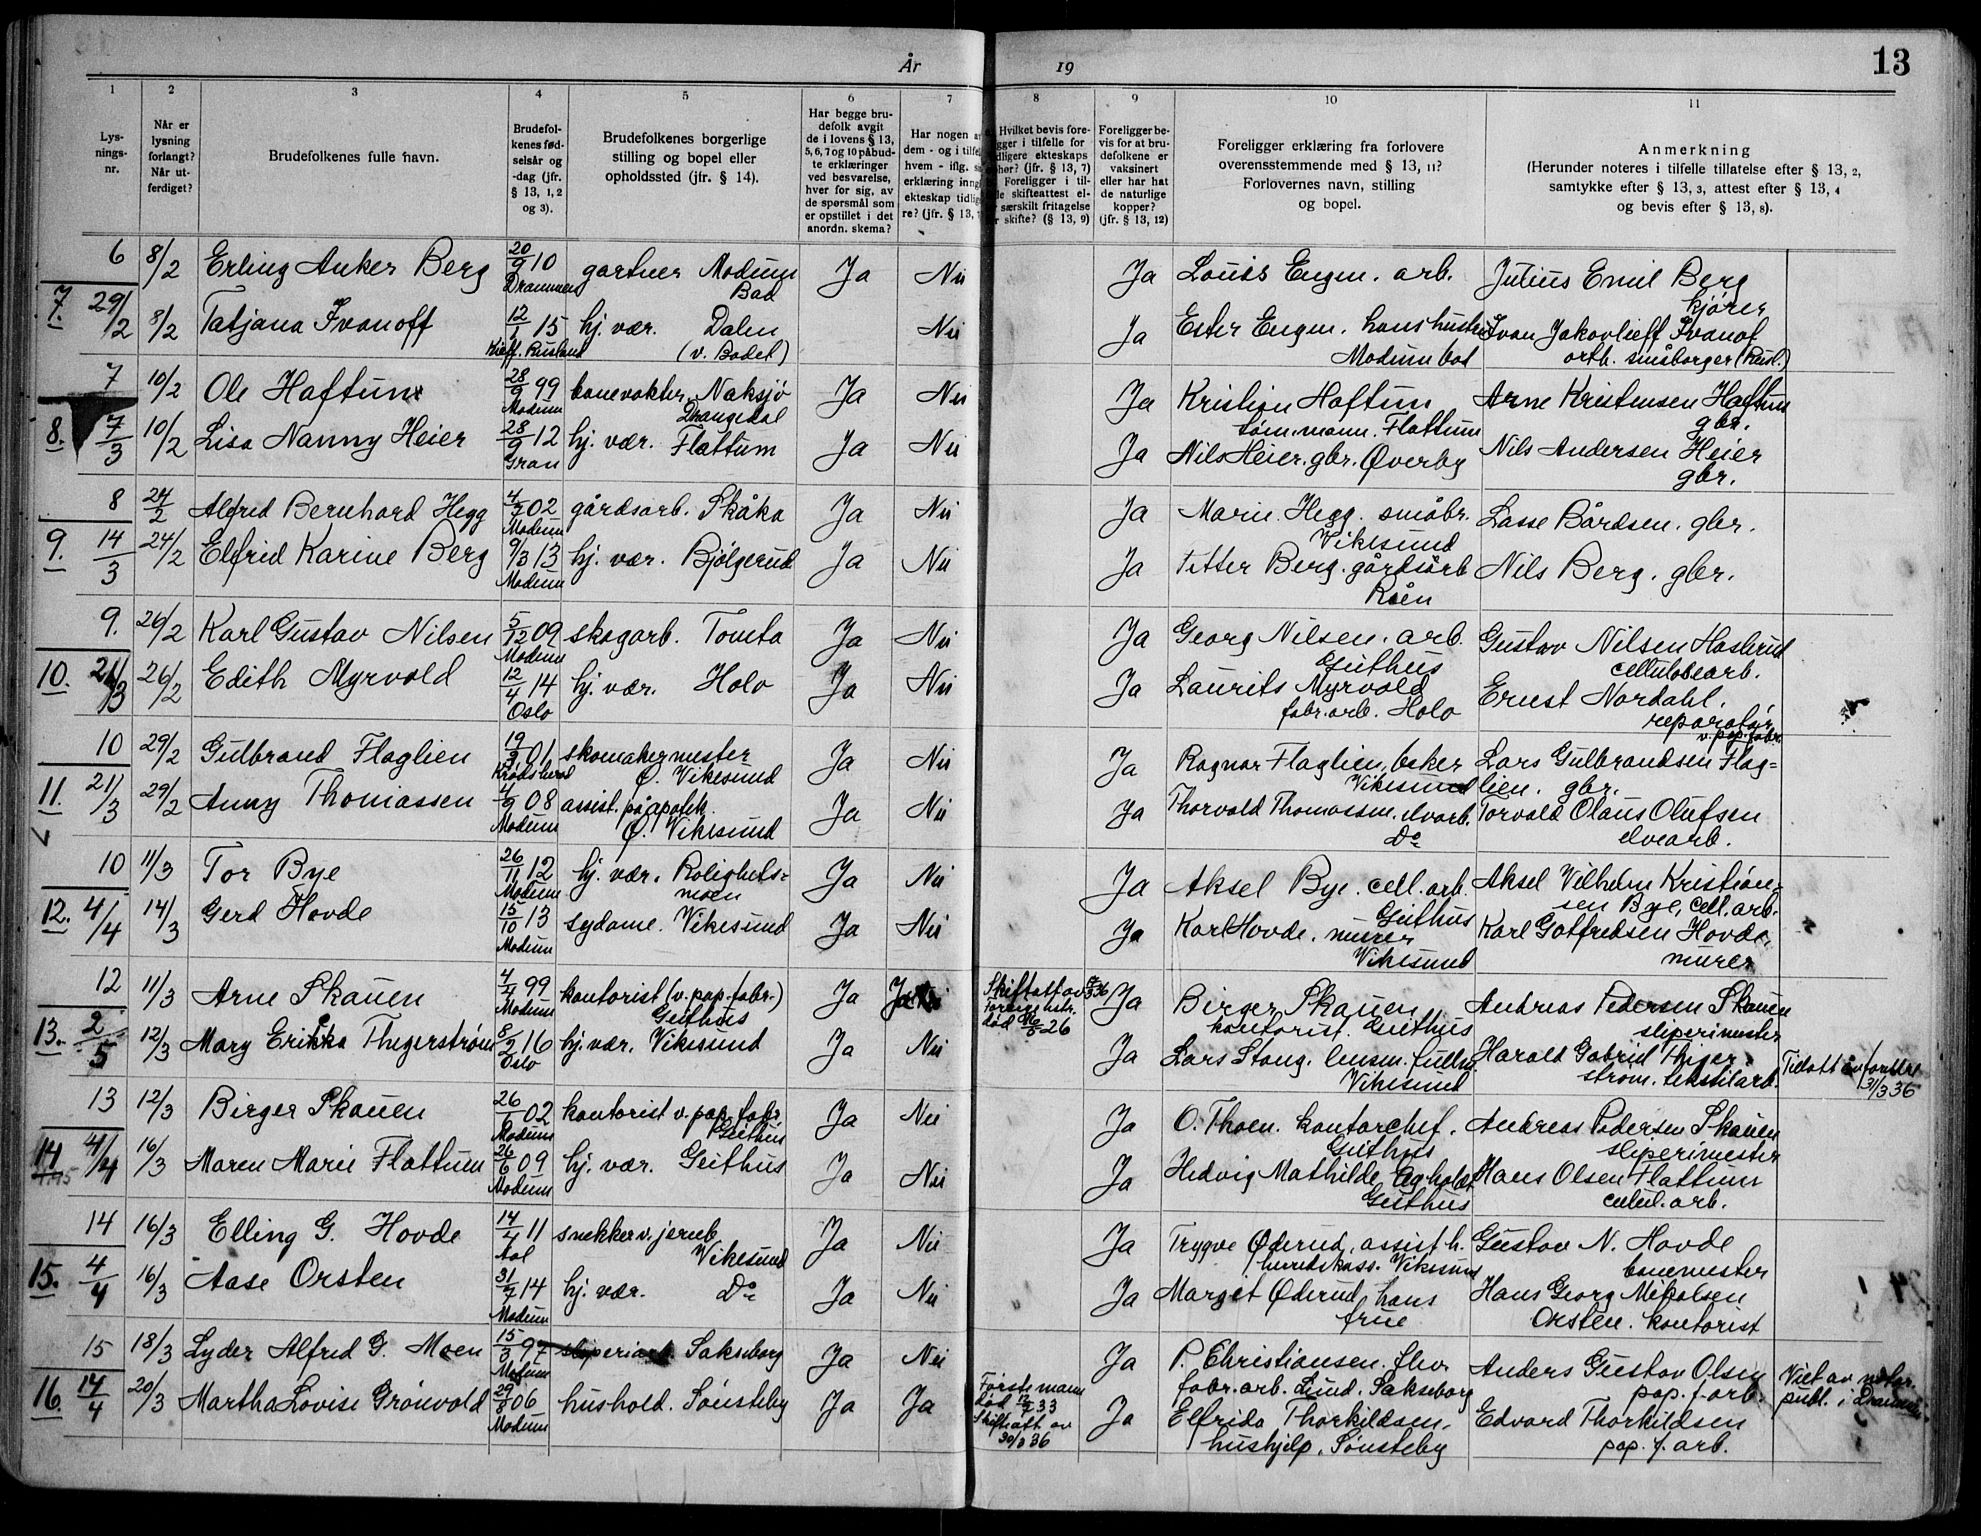 År 19 13
1 2 3 4 5 6 7 8 9 10 11
Lys-
nings-
nr.
Når er
lysning
forlangt?
Når ut-
ferdiget?
Brudefolkenes fulle navn.
Brudefol-
kenes fød-
selsår og
-dag (jfr.
§ 13, 1, 2
og 3).
Brudefolkenes borgerlige
stilling og bopel eller
opholdssted (jfr. § 14).
Har begge bru-
defolk avgit
de i lovens § 13,
5, 6, 7 og 10 påbud-
te erklæringer
ved besvarelse,
hver for sig, av
de spørsmål som
er opstillet i det
anordn. skema?
Har nogen a
dem - og i tilfel
hvem - iflg. s
erklæring inng
ekteskap tidlig
re? (jfr. § 13,
Hvilket bevis fore-
gger i tilfelle for
dligere ekteskaps
phør? (jfr. § 13, 7)
Foreligger i til-
le skifteattest el-
r særskilt fritagelse
r skifte? (§ 13, 9)
Foreligger be-
vis for at bru-
defolkene er
vaksinert
eller har hat
de naturlige
kopper?
(jfr. § 13, 12)
Foreligger erklæring fra forlovere
overensstemmende med § 13, 11?
Forlovernes navn, stilling
og bopel.
Anmerkning
(Herunder noteres i tilfelle tillatelse efter § 13, 2,
samtykke efter § 13, 3, attest efter § 13, 4
og bevis efter § 13, 8).
6 8/2 Erling Anker Berg 20/9 10 Drammen gartner Modum Bad Ja Nei Ja Louis Engen. arb. Julius Emil Berg kjører
7. 29/2 8/2 Tatjana Ivanoff 12/1 15 Kieff. Rusland hj. vær. Dalen (v. Badet) Nei Ja Ester Engen. hans hustru Modum bad Ivan Jakovlieff Ivanof orth. småborger (Rusl.)
7 10/2 Ole Haftum 28/9 99 Modum banevokter Naksjø Drangedal Ja Nei Ja Kristian Haftum tøm.mann. Flattum Arne Kristensen Haftum gbr.
8. 7/3 10/2 Lisa Nanny Heier 28/9 12 Gran hj. vær. Flattum Ja Nei Ja Nils Heier. gbr. Øverby Nils Andersen Heier gbr.
8 24/2 Alfred Bernhard Hegg 4/7 02 Modum gårdsarb. Skåka Ja Nei Ja Marie Hegg. småbr. Vikesund Lasse Bårdsen. gbr.
9. 14/3 24/2 Elfrid Karine Berg 9/3 13 Modum hj. vær. Bjølgerud Ja Nei Ja Petter Berg. gårdsarb Nils Berg. gbr.
9. 26/2 Karl Gustav Nilsen 5/12 09 Modum skogarb. Tomta Ja Nei Ja Georg Nilsen. arb. Geithus Gustav Nilsen Haslerud cellulosearb.
10. 21/3 26/2 Edith Myrvold 12/4 14 Oslo hj. vær. Holo Ja Nei Ja Laurits Myrvold fabr.arb. Holo Ernest Nordahl. reparatør v. pap. fabr.
10 29/2 Gulbrand Flaglien 19/9 01 Krødsherad skomakermester Ø. Vikesund Ja Nei Ja Ragnar Flaglien, baker Vikesund Lars Gulbrandsen Flag=lien. gbr.
11. 21/3 29/2 Anny Thomassen 4/9 08 Modum assist. på apotek. Ø. Vikesund Ja Nei Ja Thorvald Thomassen. elvarb. Do Torvald Olaus Olufsen elvearb.
10 11/3 Tor Bye 26/11 12 Modum hj. vær. Rolighets=moen Ja Nei Ja Aksel Bye. cell. arb. Geithus Aksel Vilhelm Kristian=sen Bye, cell. arb.
12. 4/4 14/3 Gerd Hovde 15/10 13 Modum sydame. Vikesund Ja Nei Ja Karl Hovde. murer Vikesund Karl Gotfredsen Hovde. murer
12 11/3 Arne Skauen 4/7 99 Modum kontorist (v. pap. fabr.) Geithus Ja Skiftatt av Ja Birger Skauen kontorist. Geithus Andreas Pedersen Skauen sliperimester
13. 2/5 12/3 Mary Erikka Thegerstrøm 8/2 16 Oslo hj. vær. Vikesund Ja Nei Ja Lars Stang. lensm. fullm. Vikesund Harald Gabriel Theger=strøm. tekstilarb. 31/3 36
13 12/3 Birger Skauen 26/1 02 Modum kontorist v. pap. fabr. Geithus Ja Nei Ja O. Thoen. kontorchef. Geithus Andreas Pedersen Skauen sliperimester
14 4/4 16/3 Maren Marie Flattum 26/6 09 Modum hj. vær. Geithus Ja Nei Ja Hedvig Mathilde Agholdt Geithus Hans Olsen Flattum cellul. arb.
14 16/3 Elling G. Hovde 14/4 11 Aal snekker v. jernb. Vikesund Ja Nei Ja Trygve Øderud, assist h. herredskass. Vikesund Gustav N. Hovde banemester
15. 4/4 16/3 Aase Orsten 31/7 14 Modum hj. vær. Do Ja Nei Ja Margit Øderud, hans frue Hans Georg Mikalsen Orsten. kontorist
15 18/3 Lyder Alfred G. Moen 15/3 97 Modum sliperiarb. Sakseborg Ja Nei Ja P. Christiansen. fhv. fabr. arb. Lund. Sakseborg Anders Gustav Olsen pap. f. arb.
16. 14/4 20/3 Martha Lovise Grönvold 29/8 06 Modum hushold. Sønsteby Ja Ja Første mann død 33 Skiftatt. av 30/3 36 Ja Elfrida Thorkildsen. hushjelp. Sønsteby Edvard Thorkildsen pap. f. arb. Viet av notar. publ. i Drammen